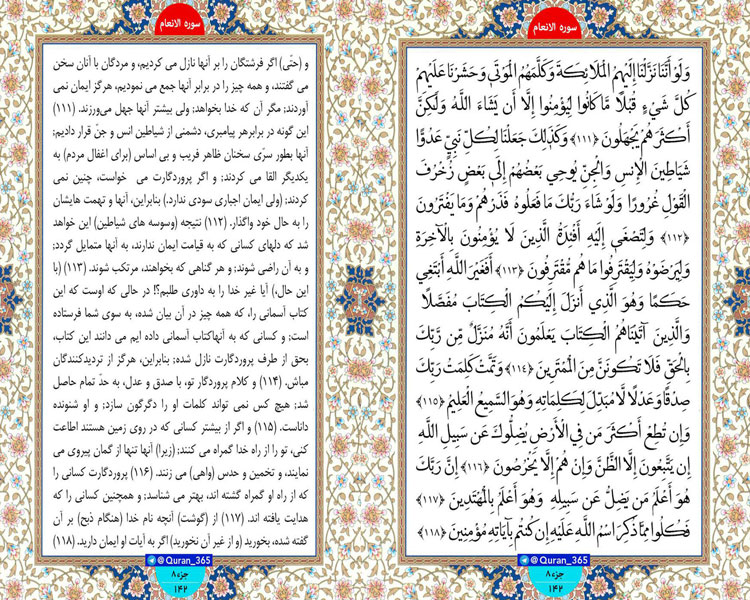 سوره الانعام
وَلَوْ أَنَّنَا نَزَّلْنَا إِلَيْهِمُ الْمَلَائِكَةَ وَكَلَّمَهُمُ الْمَوْتَىٰ وَحَشَرْنَا عَلَيْهِمْ
كُلَّ شَيْءٍ قُبُلًا مَّا كَانُوا لِيُؤْمِنُوا إِلَّا أَن يَشَاءَ اللَّهُ وَلَٰكِنَّ
أَكْثَرَهُمْ يَجْهَلُونَ ﴿۱۱۱﴾ وَكَذَٰلِكَ جَعَلْنَا لِكُلِّ نَبِيٍّ عَدُوًّا
شَيَاطِينَ الْإِنسِ وَالْجِنِّ يُوحِي بَعْضُهُمْ إِلَىٰ بَعْضٍ زُخْرُفَ
الْقَوْلِ غُرُورًا وَلَوْ شَاءَ رَبُّكَ مَا فَعَلُوهُ فَذَرْهُمْ وَمَا يَفْتَرُونَ
﴿۱۱۲﴾ وَلِتَصْغَىٰ إِلَيْهِ أَفْئِدَةُ الَّذِينَ لَا يُؤْمِنُونَ بِالْآخِرَةِ
وَلِيَرْضَوْهُ وَلِيَقْتَرِفُوا مَا هُم مُّقْتَرِفُونَ ﴿۱۱۳﴾ أَفَغَيْرَ اللَّهِ أَبْتَغِي
حَكَمًا وَهُوَ الَّذِي أَنزَلَ إِلَيْكُمُ الْكِتَابَ مُفَصَّلًا
وَالَّذِينَ آتَيْنَاهُمُ الْكِتَابَ يَعْلَمُونَ أَنَّهُ مُنَزَّلٌ مِّن رَّبِّكَ
بِالْحَقِّ فَلَا تَكُونَنَّ مِنَ الْمُمْتَرِينَ ﴿۱۱۴﴾ وَتَمَّتْ كَلِمَتُ رَبِّكَ
صِدْقًا وَعَدْلًا لَّا مُبَدِّلَ لِكَلِمَاتِهِ وَهُوَ السَّمِيعُ الْعَلِيمُ ﴿۱۱۵﴾
وَإِن تُطِعْ أَكْثَرَ مَن فِي الْأَرْضِ يُضِلُّوكَ عَن سَبِيلِ اللَّهِ
إِن يَتَّبِعُونَ إِلَّا الظَّنَّ وَإِنْ هُمْ إِلَّا يَخْرُصُونَ ﴿۱۱۶﴾ إِنَّ رَبَّكَ
هُوَ أَعْلَمُ مَن يَضِلُّ عَن سَبِيلِهِ وَهُوَ أَعْلَمُ بِالْمُهْتَدِينَ ﴿۱۱۷﴾
فَكُلُوا مِمَّا ذُكِرَ اسْمُ اللَّهِ عَلَيْهِ إِن كُنتُم بِآيَاتِهِ مُؤْمِنِينَ ﴿۱۱۸﴾
@Quran_365
جزء ۸
۱۴۲
سوره الانعام
و (حتّی) اگر فرشتگان را بر آنها نازل می کردیم، و مردگان با آنان سخن
می گفتند، و همه چیز را در برابر آنها جمع می نمودیم، هرگز ایمان نمی
آوردند؛ مگر آن که خدا بخواهد؛ ولی بیشتر آنها جهل می‌ورزند. (۱۱۱)
این گونه در برابرهر پیامبری، دشمنی از شیاطین انس و جنّ قرار دادیم؛
آنها بطور سرّی سخنان ظاهر فریب و بی اساس (برای اغفال مردم) به
یکدیگر القا می کردند؛ و اگر پروردگارت می خواست، چنین نمی
کردند؛ (ولی ایمان اجباری سودی ندارد.) بنابراین، آنها و تهمت هایشان
را به حال خود واگذار. (۱۱۲) نتیجه (وسوسه های شیاطین) این خواهد
شد که دلهای کسانی که به قیامت ایمان ندارند، به آنها متمایل گردد؛
و به آن راضی شوند؛ و هر گناهی که بخواهند، مرتکب شوند. (۱۱۳) (با
این حال،) آیا غیر خدا را به داوری طلبم؟! در حالی که اوست که این
کتاب آسمانی را، که همه چیز در آن بیان شده، به سوی شما فرستاده
است؛ و کسانی که به آنهاکتاب آسمانی داده ایم می دانند این کتاب،
بحق از طرف پروردگارت نازل شده؛ بنابراین، هرگز از تردیدکنندگان
مباش. (۱۱۴) و کلام پروردگار تو، با صدق و عدل، به حدّ تمام حاصل
شد؛ هیچ کس نمی تواند کلمات او را دگرگون سازد؛ و او شنونده
داناست. (۱۱۵) و اگر از بیشتر کسانی که در روی زمین هستند اطاعت
کنی، تو را از راه خدا گمراه می کنند؛ (زیرا) آنها تنها از گمان پیروی می
نمایند، و تخمین و حدس (واهی) می زنند. (۱۱۶) پروردگارت کسانی را
که از راه او گمراه گشته اند، بهتر می شناسد؛ و همچنین کسانی را که
هدایت یافته اند. (۱۱۷) از (گوشت) آنچه نام خدا (هنگام ذبح) بر آن
گفته شده، بخورید (و از غیر آن نخورید) اگر به آیات او ایمان دارید. (۱۱۸)
@Quran_365
جزء ۸
۱۴۲